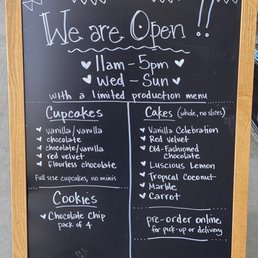 We are Open !!
♥ 11am - 5pm ♥
♥ Wed - Sun ♥
with a limited production menu
Cupcakes
♥ vanilla/vanilla
♥ chocolate
♥ chocolate/vanilla
♥ red velvet
♥ flourless chocolate
Full size cupcakes, no minis
Cookies
♥ Chocolate Chip
pack of 4
Cakes (whole, no slices)
♥ Vanilla Celebration
♥ Red Velvet
♥ Old-Fashioned
chocolate
♥ Luscious Lemon
♥ Tropical Coconut
♥ Marble
♥ Carrot
pre-order online
for pick-up or delivery